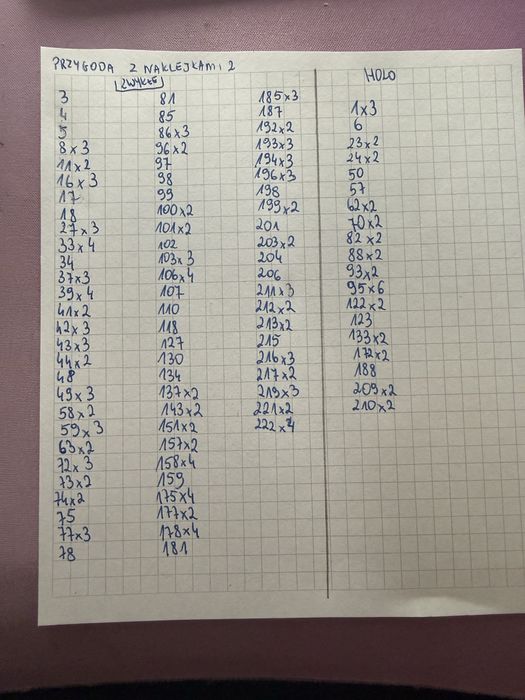 PRZYGODA Z NAKLEJKAMI 2
ZWYKŁE
3
4
5
8 x 3
11 x 2
16 x 3
17
18
27 x 3
33 x 4
34
37 x 3
39 x 4
41 x 2
42 x 3
43 x 3
44 x 2
48
49 x 3
58 x 2
59 x 3
63 x 2
72 x 3
73 x 2
74 x 2
75
77 x 3
78
81
85
86 x 3
96 x 2
97
98
99
100 x 2
101 x 2
102
103 x 3
106 x 4
107
110
118
127
130
134
137 x 2
143 x 2
151 x 2
157 x 2
158 x 4
159
175 x 4
177 x 2
178 x 4
181
185 x 3
187
192 x 2
193 x 3
194 x 3
196 x 3
198
199 x 2
201
203 x 2
204
206
211 x 3
212 x 2
213 x 2
215
216 x 3
217 x 2
219 x 3
221 x 2
222 x 4
HOLO
1 x 3
6
23 x 2
24 x 2
50
57
62 x 2
70 x 2
82 x 2
88 x 2
93 x 2
95 x 6
122 x 2
123
133 x 2
172 x 2
188
209 x 2
210 x 2